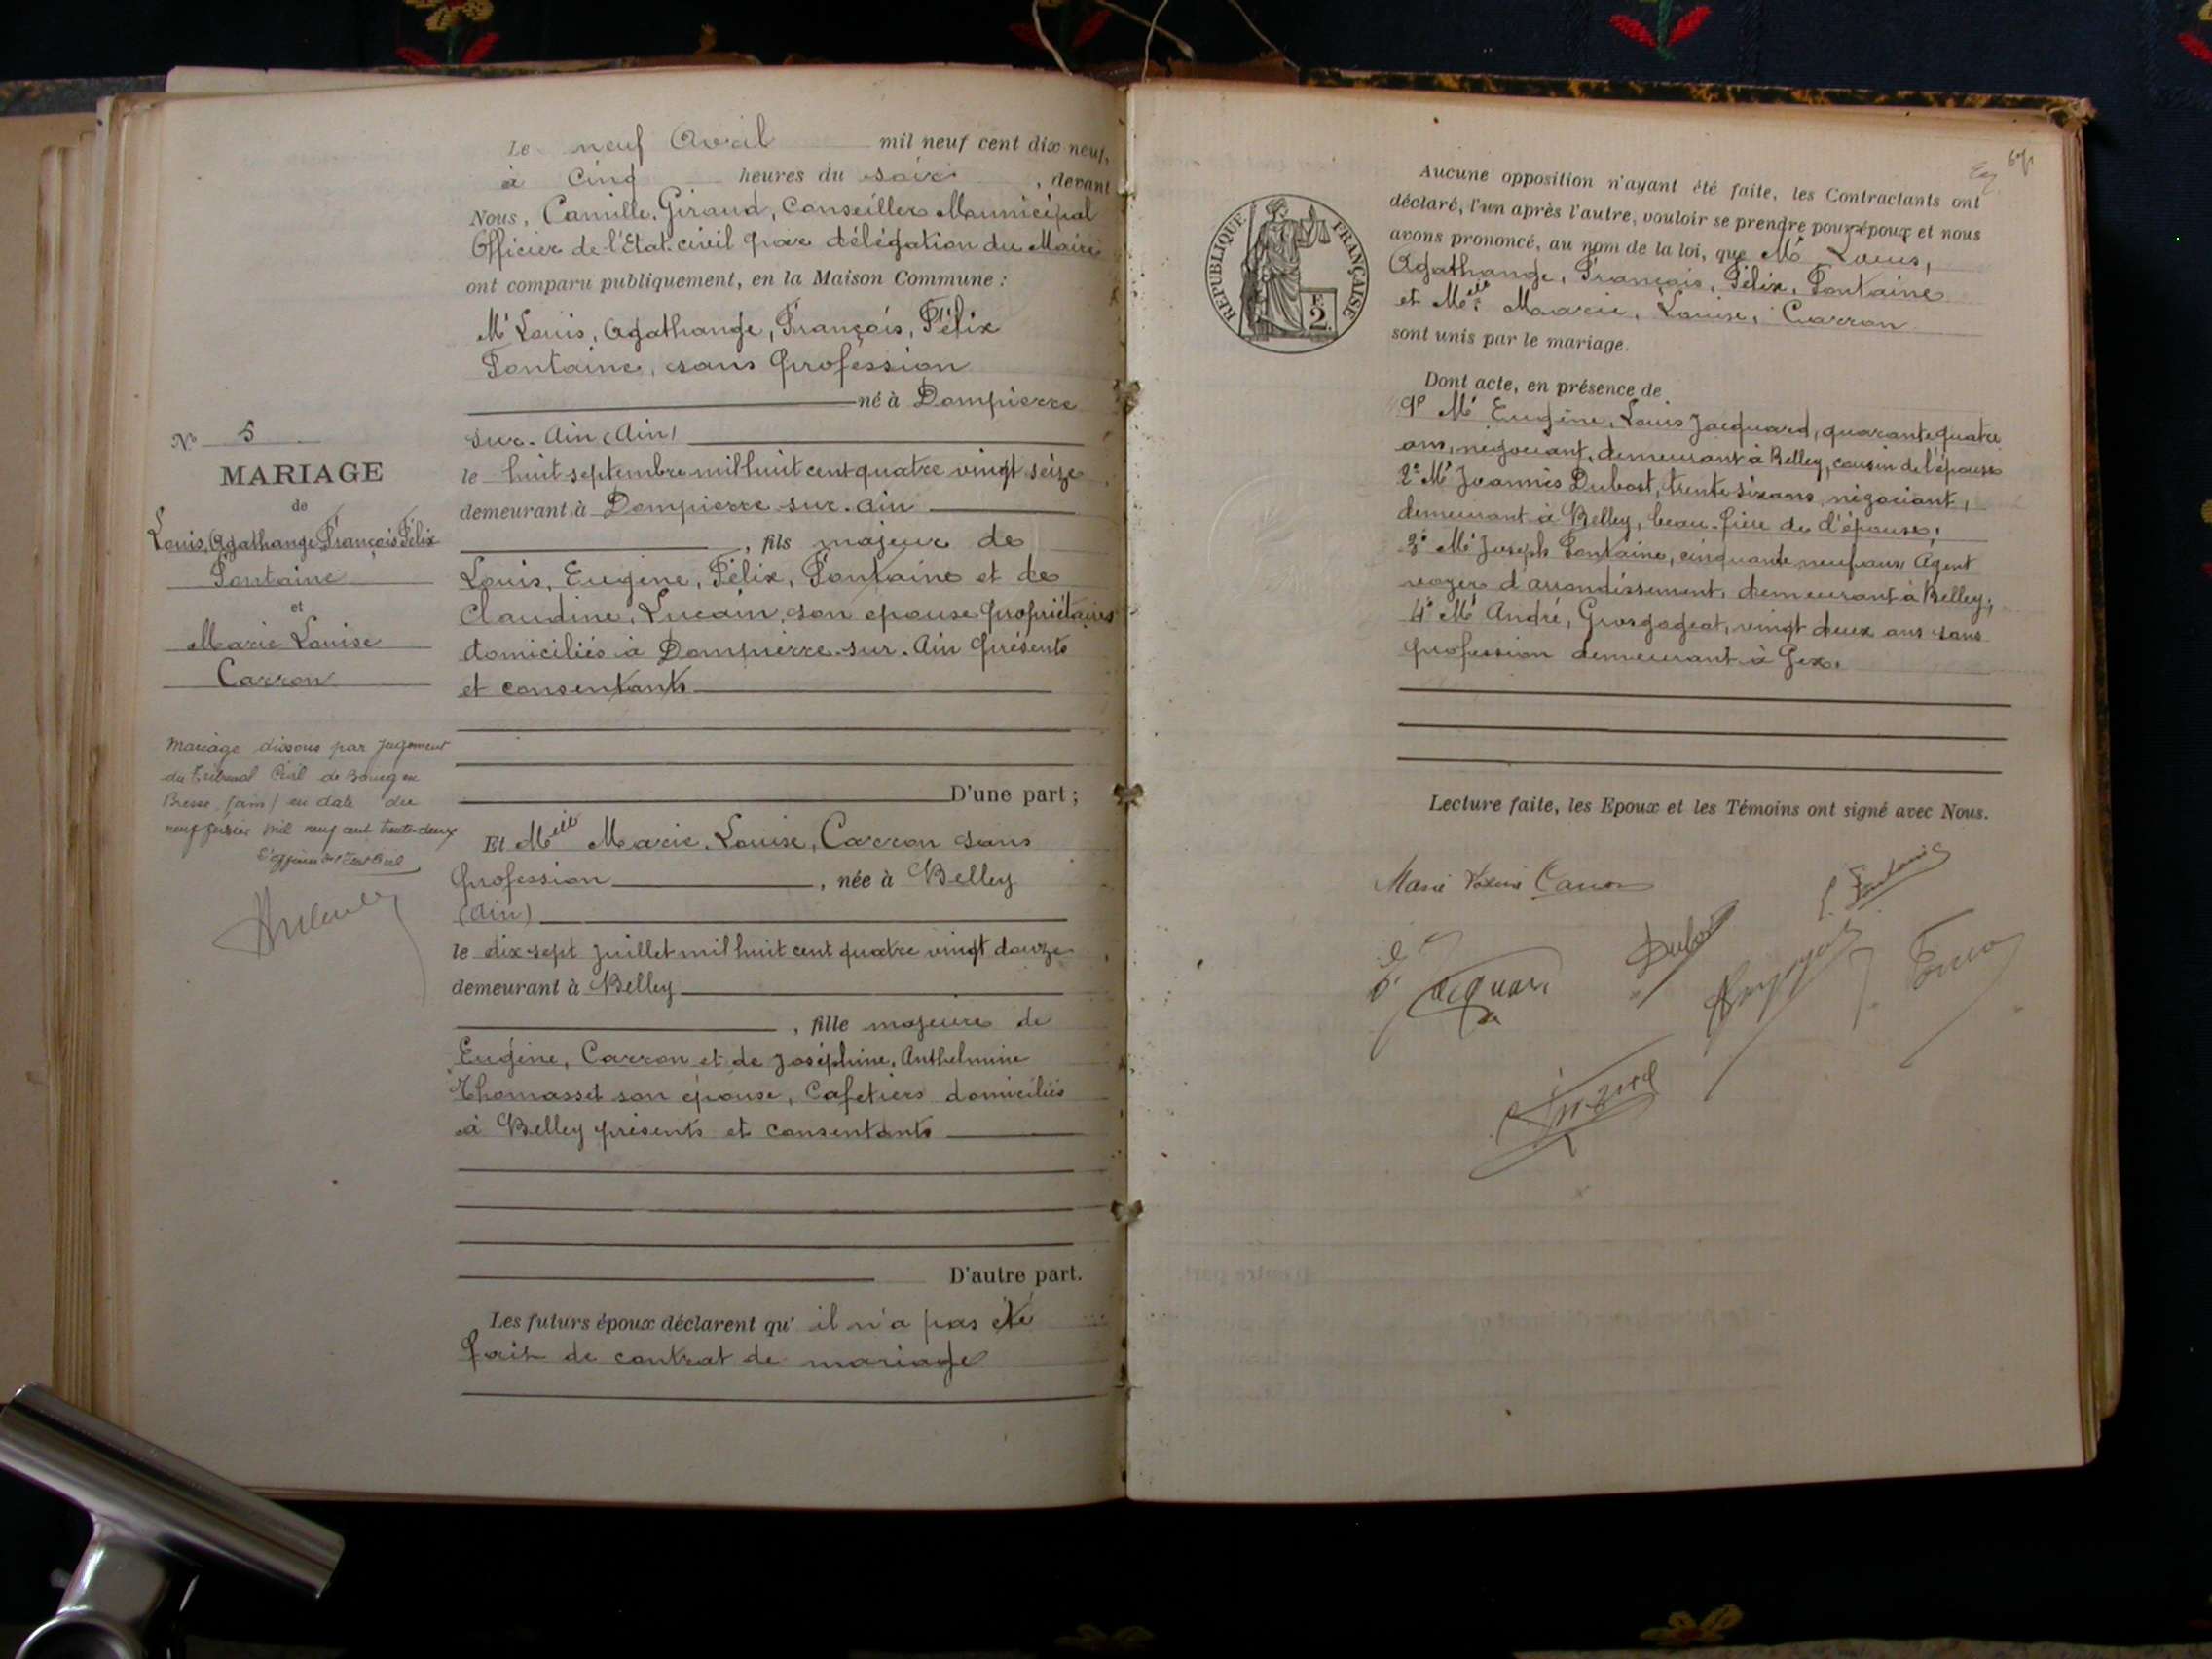 Le neuf Avril mil neuf cent dix neuf,
à Cinq heures du soir, devant
Nous, Camille, Giraud, Conseiller Municipal
Officier de l'Etat civil par délégation du Maire
ont comparu publiquement, en la Maison Commune :
Mr Louis, Agathange, François, Félix
Fontaine, sans profession
né à Dompierre
sur. Ain (Ain)
le huit septembre mil huit cent quatre vingt seize
demeurant à Dompierre sur. Ain
, fils majeur de
Louis, Eugène, Félix, Fontaine et de
Claudine, Lucain, son epouse propriétaires
domiciliés à Dompierre. sur. Ain présents
et consentants
D'une part ;
Et Melle Marie, Louise, Carron sans
profession, née à Belley
(Ain)
le dix-sept juillet mil huit cent quatre vingt douze
demeurant à Belley
, fille majeure de
Eugène, Carron et de Joséphine, Anthelmine
Thomasset son épouse, Cafetiers domiciliés
à Belley présents et consentants
D'autre part.
Les futurs époux déclarent qu' il n'a pas été
fait de contrat de mariage
No 5
MARIAGE
de
Louis, Agathange, François Félix
Fontaine
et
Marie Louise
Carron
Mariage dissous par jugement
du Tribunal Civil de Bourg en
Bresse (ain) en date du
neuf février mil neuf cent trente-deux
L'officier de l'Etat Civil
67
Aucune opposition n'ayant été faite, les Contractants ont
déclaré, l'un après l'autre, vouloir se prendre pour époux et nous
avons prononcé, au nom de la loi, que Mr Louis,
Agathange, François, Félix, Fontaine
et Melle Marie, Louise, Carron
sont unis par le mariage.
Dont acte, en présence de
1o Mr Eugène, Louis Jacquard, quarante quatre
ans, négociant, demeurant à Belley, cousin de l'épouse
2o Mr Joannès Dubost, trente six ans, négociant,
demeurant à Belley, beau-frère de l'épouse,
3o Mr Joseph Fontaine, cinquante neuf ans, Agent
voyer d'arrondissement, demeurant à Belley,
4o Mr André, Grosgogeat, vingt deux ans sans
profession demeurant à Gex.
Lecture faite, les Epoux et les Témoins ont signé avec Nous.
Marie Louise Carron
RÉPUBLIQUE FRANÇAISE
E
2